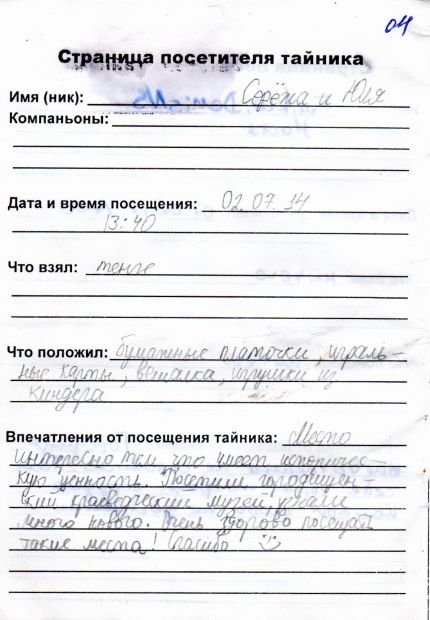 04
Страница посетителя тайника
Имя (ник): Серёжа и Юля
Компаньоны:
Дата и время посещения: 02.07.14
13:40
Что взял: тенге
Что положил: бумажные платочки, играль-
ные карты, вешалка, игрушки из
киндера
Впечатления от посещения тайника: Место
интересно тем что имеет историчес-
кую ценность. Посетили городищен
ский краеведческий музей, узнали
много нового. Очень здорово посещать
такие места! Спасибо